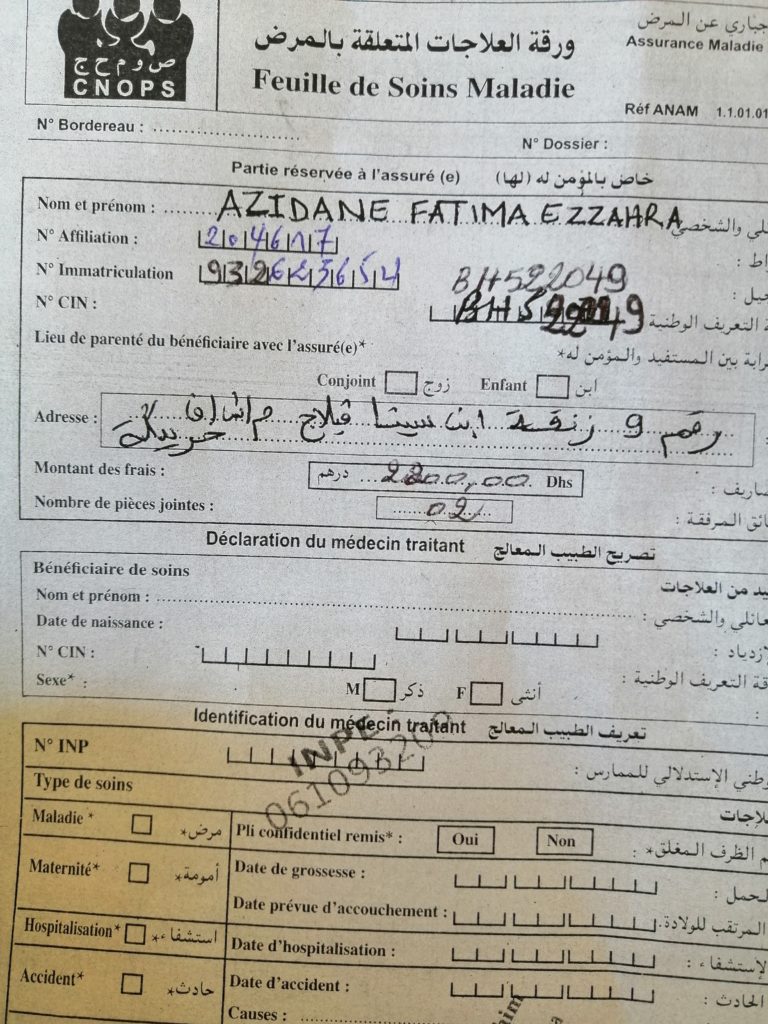 ص و م ح ج
CNOPS
ورقة العلاجات المتعلقة بالمرض
Feuille de Soins Maladie
جباري عن المرض
Assurance Maladie
Réf ANAM 1.1.01.01
N° Bordereau :
N° Dossier :
Partie réservée à l'assuré (e) خاص بالمؤمن له (لها)
Nom et prénom : AZIDANE FATIMA EZZAHRA
N° Affiliation :
N° Immatriculation
BH522049
N° CIN : التعريف الوطنية
Lieu de parenté du bénéficiaire avec l'assuré(e)* رابة بين المستفيد والمؤمن له*
Conjoint زوج Enfant ابن
Adresse : رقم 9 زنقة ابن سينا فيلاج
Montant des frais : 2200,00 درهم Dhs
Nombre de pièces jointes : 02
Déclaration du médecin traitant تصريح الطبيب المعالج
Bénéficiaire de soins
يد من العلاجات
Nom et prénom : عائلي والشخصي :
Date de naissance : زدياد :
N° CIN : قة التعريف الوطنية :
Sexe* : M ذكر F أنثى
Identification du médecin traitant تعريف الطبيب المعالج
N° INP وطني الإستدلالي للممارس :
INPE
Type de soins
Maladie* مرض*
Pli confidentiel remis* : Oui Non م الظرف المغلق* :
Maternité* أمومة*
Date de grossesse : لحمل :
Date prévue d'accouchement : المرتقب للولادة
Hospitalisation* استشفاء*
Date d'hospitalisation : لإستشفاء :
Accident* حادث*
Date d'accident : الحادث :
Causes :